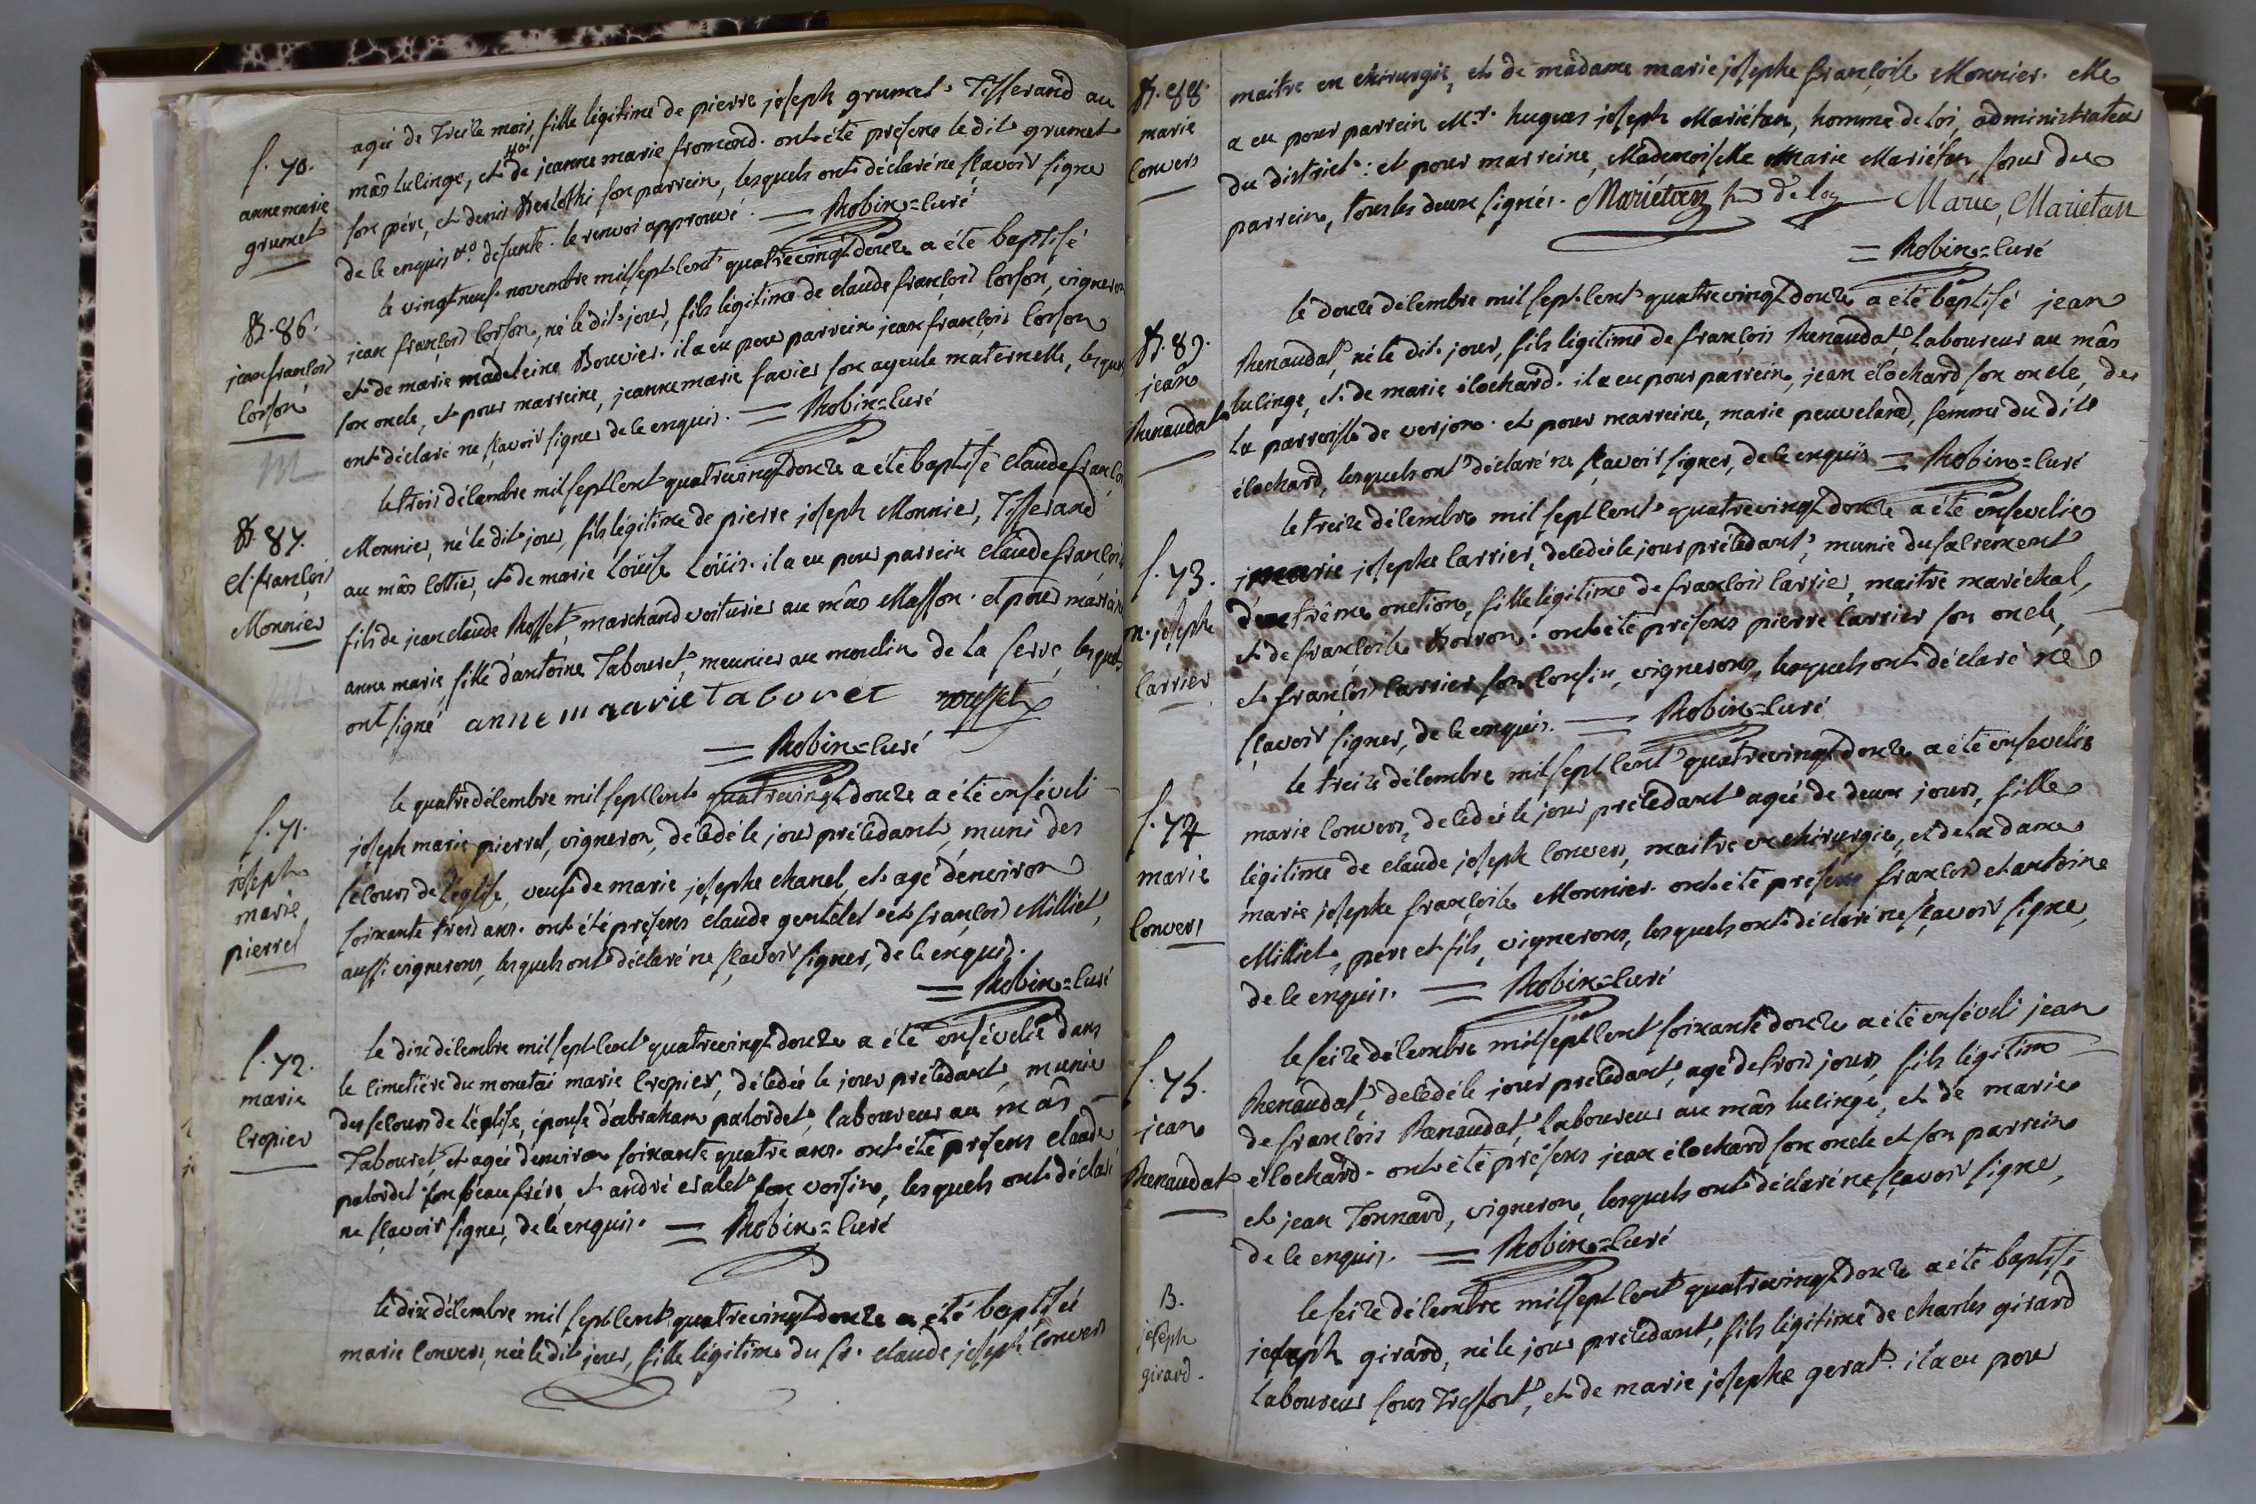 s. 70.
anne marie
grumet
agée de treize mois, fille légitime de pierre joseph grumet, Tisserand au
mâs lulinge, et de jeanne marie fromond. ont été présens le dit grumet
son père, et denis son parrein, lesquels ont déclaré ne sçavoir signer
de ce enquis. défunte. le renvoi approuvé. = Robin=curé
B. 86.
jean françois
corson
le vingt neuf novembre mil sept cent quatrevingt douze a été baptisé
jean françois corson, né le dit jour, fils légitime de claude françois corson, vigneron
et de marie madeleine Bouvier. il a eu pour parrein jean françois corson
son oncle, et pour marreine, jeanne marie favier son ayeule maternelle, lesquels
ont déclaré ne sçavoir signer de ce enquis. = Robin=curé
B. 87.
cl. françois
Monnier
le trois décembre mil sept cent quatrevingt douze a été baptisé claude françois
Monnier, né le dit jour, fils légitime de pierre joseph Monnier, Tisserand
au mâs cottier, et de marie Loüise Loüis. il a eu pour parrein claude françois
fils de jean claude Rosset, marchand voiturier au mâs Masson. et pour marreine
anne marie, fille d'antoine Tabouret, meunier au moulin de la serve, lesquels
ont signé anne marie tabouret rousset
= Robin=curé
s. 71.
joseph
marie
pierrel
le quatre décembre mil sept cent quatrevingt douze a été enséveli
joseph marie pierrel, vigneron, décédé le jour précédant, muni des
secours de l'église, veuf de marie josephe chanel, et agé d'environ
soixante trois ans. ont été présens claude gentelet et françois Milliet,
aussi vignerons, lesquels ont déclaré ne sçavoir signer, de ce enquis.
= Robin=curé
s. 72.
marie
cropier
le dix décembre mil sept cent quatrevingt douze a été ensévelie dans
le cimetière du monetai marie cropier, décédée le jour précédant, munie
des secours de l'église, épouse d'abraham palordet, laboureur au mâs
Tabouret, et agée d'environ soixante quatre ans. ont été présens claude
palordet son beaufrère, et andré eralet son voisin, lesquels ont déclaré
ne sçavoir signer, de ce enquis. = Robin=curé
le dix décembre mil sept cent quatrevingt douze a été baptisée
marie convers, née le dit jour, fille légitime du sr. claude joseph convers
B. 88.
marie
convers
maitre en chirurgie, et de mâdame marie josephe françoise Monnier. elle
a eu pour parrein Mr. hugues joseph Mariétan, homme de loi, administrateur
du district: et pour marreine, Mademoiselle Marie Mariétan, soeur du
parrein, tous les deux signés. Mariétan h de loy Marie, Mariétan
= Robin=curé
B. 89.
jean
Renaudat
le douze décembre mil sept cent quatrevingt douze a été baptisé jean
Renaudat, né le dit jour, fils légitime de françois Renaudat, laboureur au mâs
lulinge, et de marie élochard. il a eu pour parrein, jean élochard son oncle, de
la parroisse de verjon. et pour marreine, marie peuveland, femme du dit
élochard, lesquels ont déclaré ne sçavoir signer, de ce enquis = Robin=curé
s. 73.
m. josephe
carrier
le treize décembre mil sept cent quatrevingt douze a été ensevelie
marie josephe carrier, décédée le jour précédant, munie du sacrement
d'extrême onction, fille légitime de françois carrier, maitre maréchal,
et de françoise Borron. ont été présens pierre carrier son oncle,
et françois carrier son cousin, vignerons, lesquels ont déclaré ne
sçavoir signer, de ce enquis. = Robin=curé
s. 74
marie
convers
le treize décembre mil sept cent quatrevingt douze a été ensevelie
marie convers, décédée le jour précédant agée de deux jours, fille
légitime de claude joseph convers, maitre en chirurgie, et de la dame
marie josephe françoise Monnier. ont été présens françois et antoine
Milliet, père et fils, vignerons, lesquels ont déclaré ne sçavoir signer,
de ce enquis. = Robin=curé
s. 75.
jean
Renaudat
le seize décembre mil sept cent soixante douze a été enséveli jean
Renaudat, décédé le jour précédant, agé de trois jours, fils légitime
de françois Renaudat, laboureur au mâs lulinge, et de marie
élochard. ont été présens jean élochard son oncle et son parrein
et jean Tonnard, vigneron, lesquels ont déclaré ne sçavoir signer,
de ce enquis. = Robin=curé
B.
joseph
girard.
le seize décembre mil sept cent quatrevingt douze a été baptisé
joseph girard, né le jour précédant, fils légitime de charles girard
laboureur sous Treffort, et de marie josephe gerat. il a eu pour